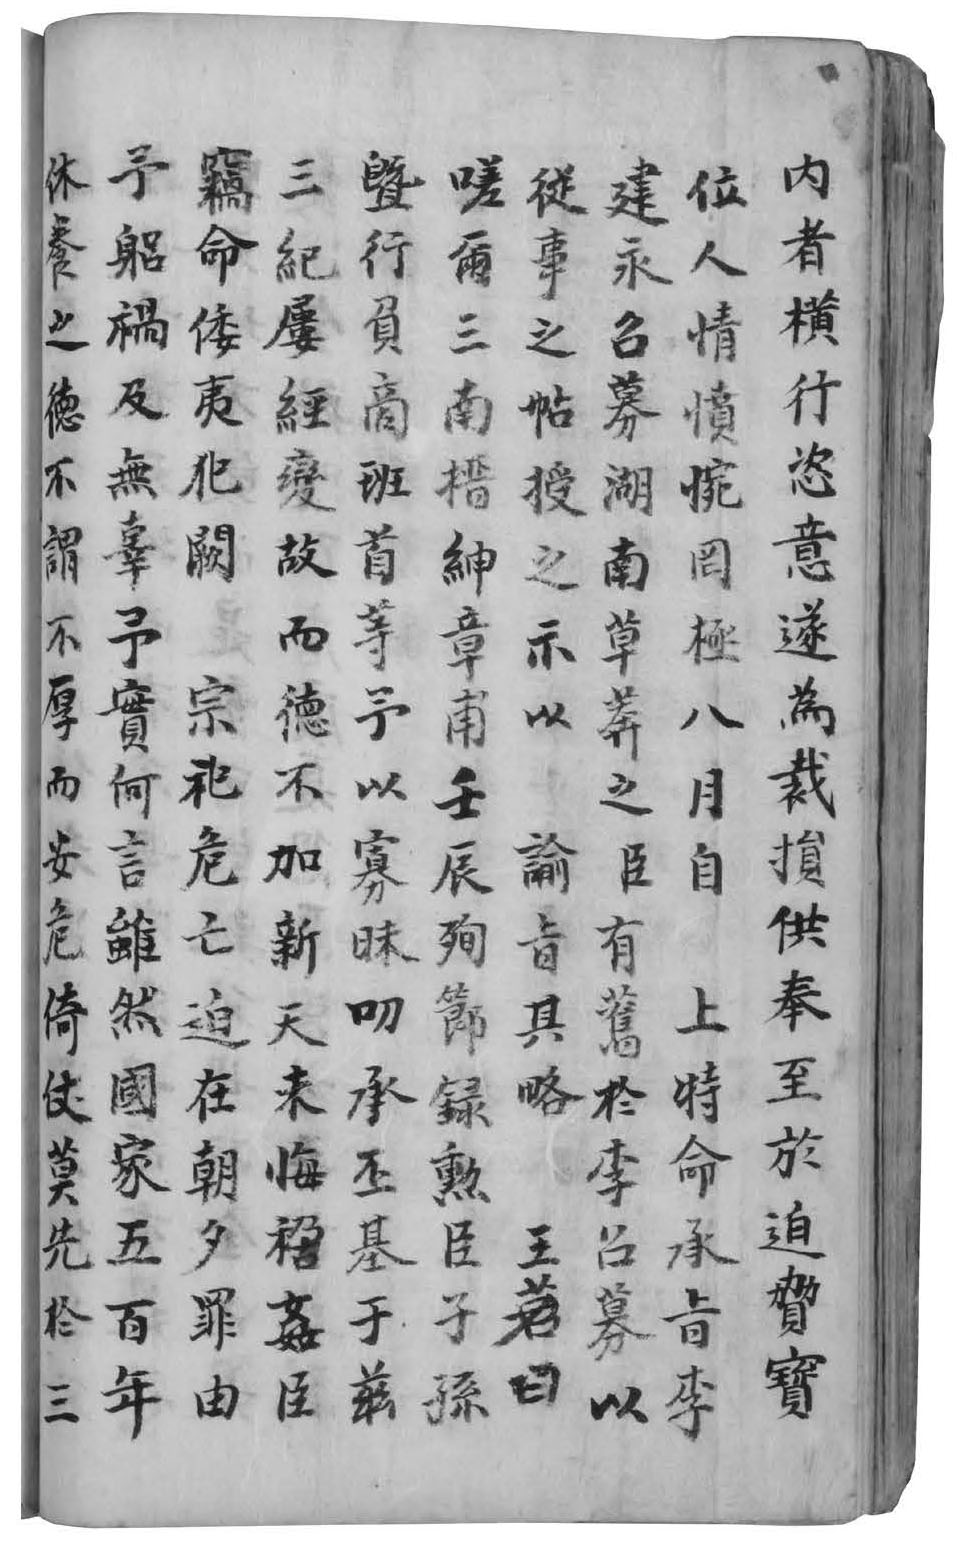 內者橫行恣意遂為裁損供奉至於迫贊寶
位人情憤惋罔極八月自 上特命承旨李
建永召募湖南草莽之臣有舊於李召募以
從事之帖授之示以 諭旨其略 王若曰
嗟爾三南搢紳章甫壬辰殉節錄勳臣子孫
曁行負商班首等予以寡昧叨承丕基于茲
三紀屢經變故而德不加新天未悔禍姦臣
竊命倭夷犯闕 宗祀危亡迫在朝夕罪由
予躬禍及無辜予實何言雖然國家五百年
休養之德不謂不厚而安危倚仗莫先於三